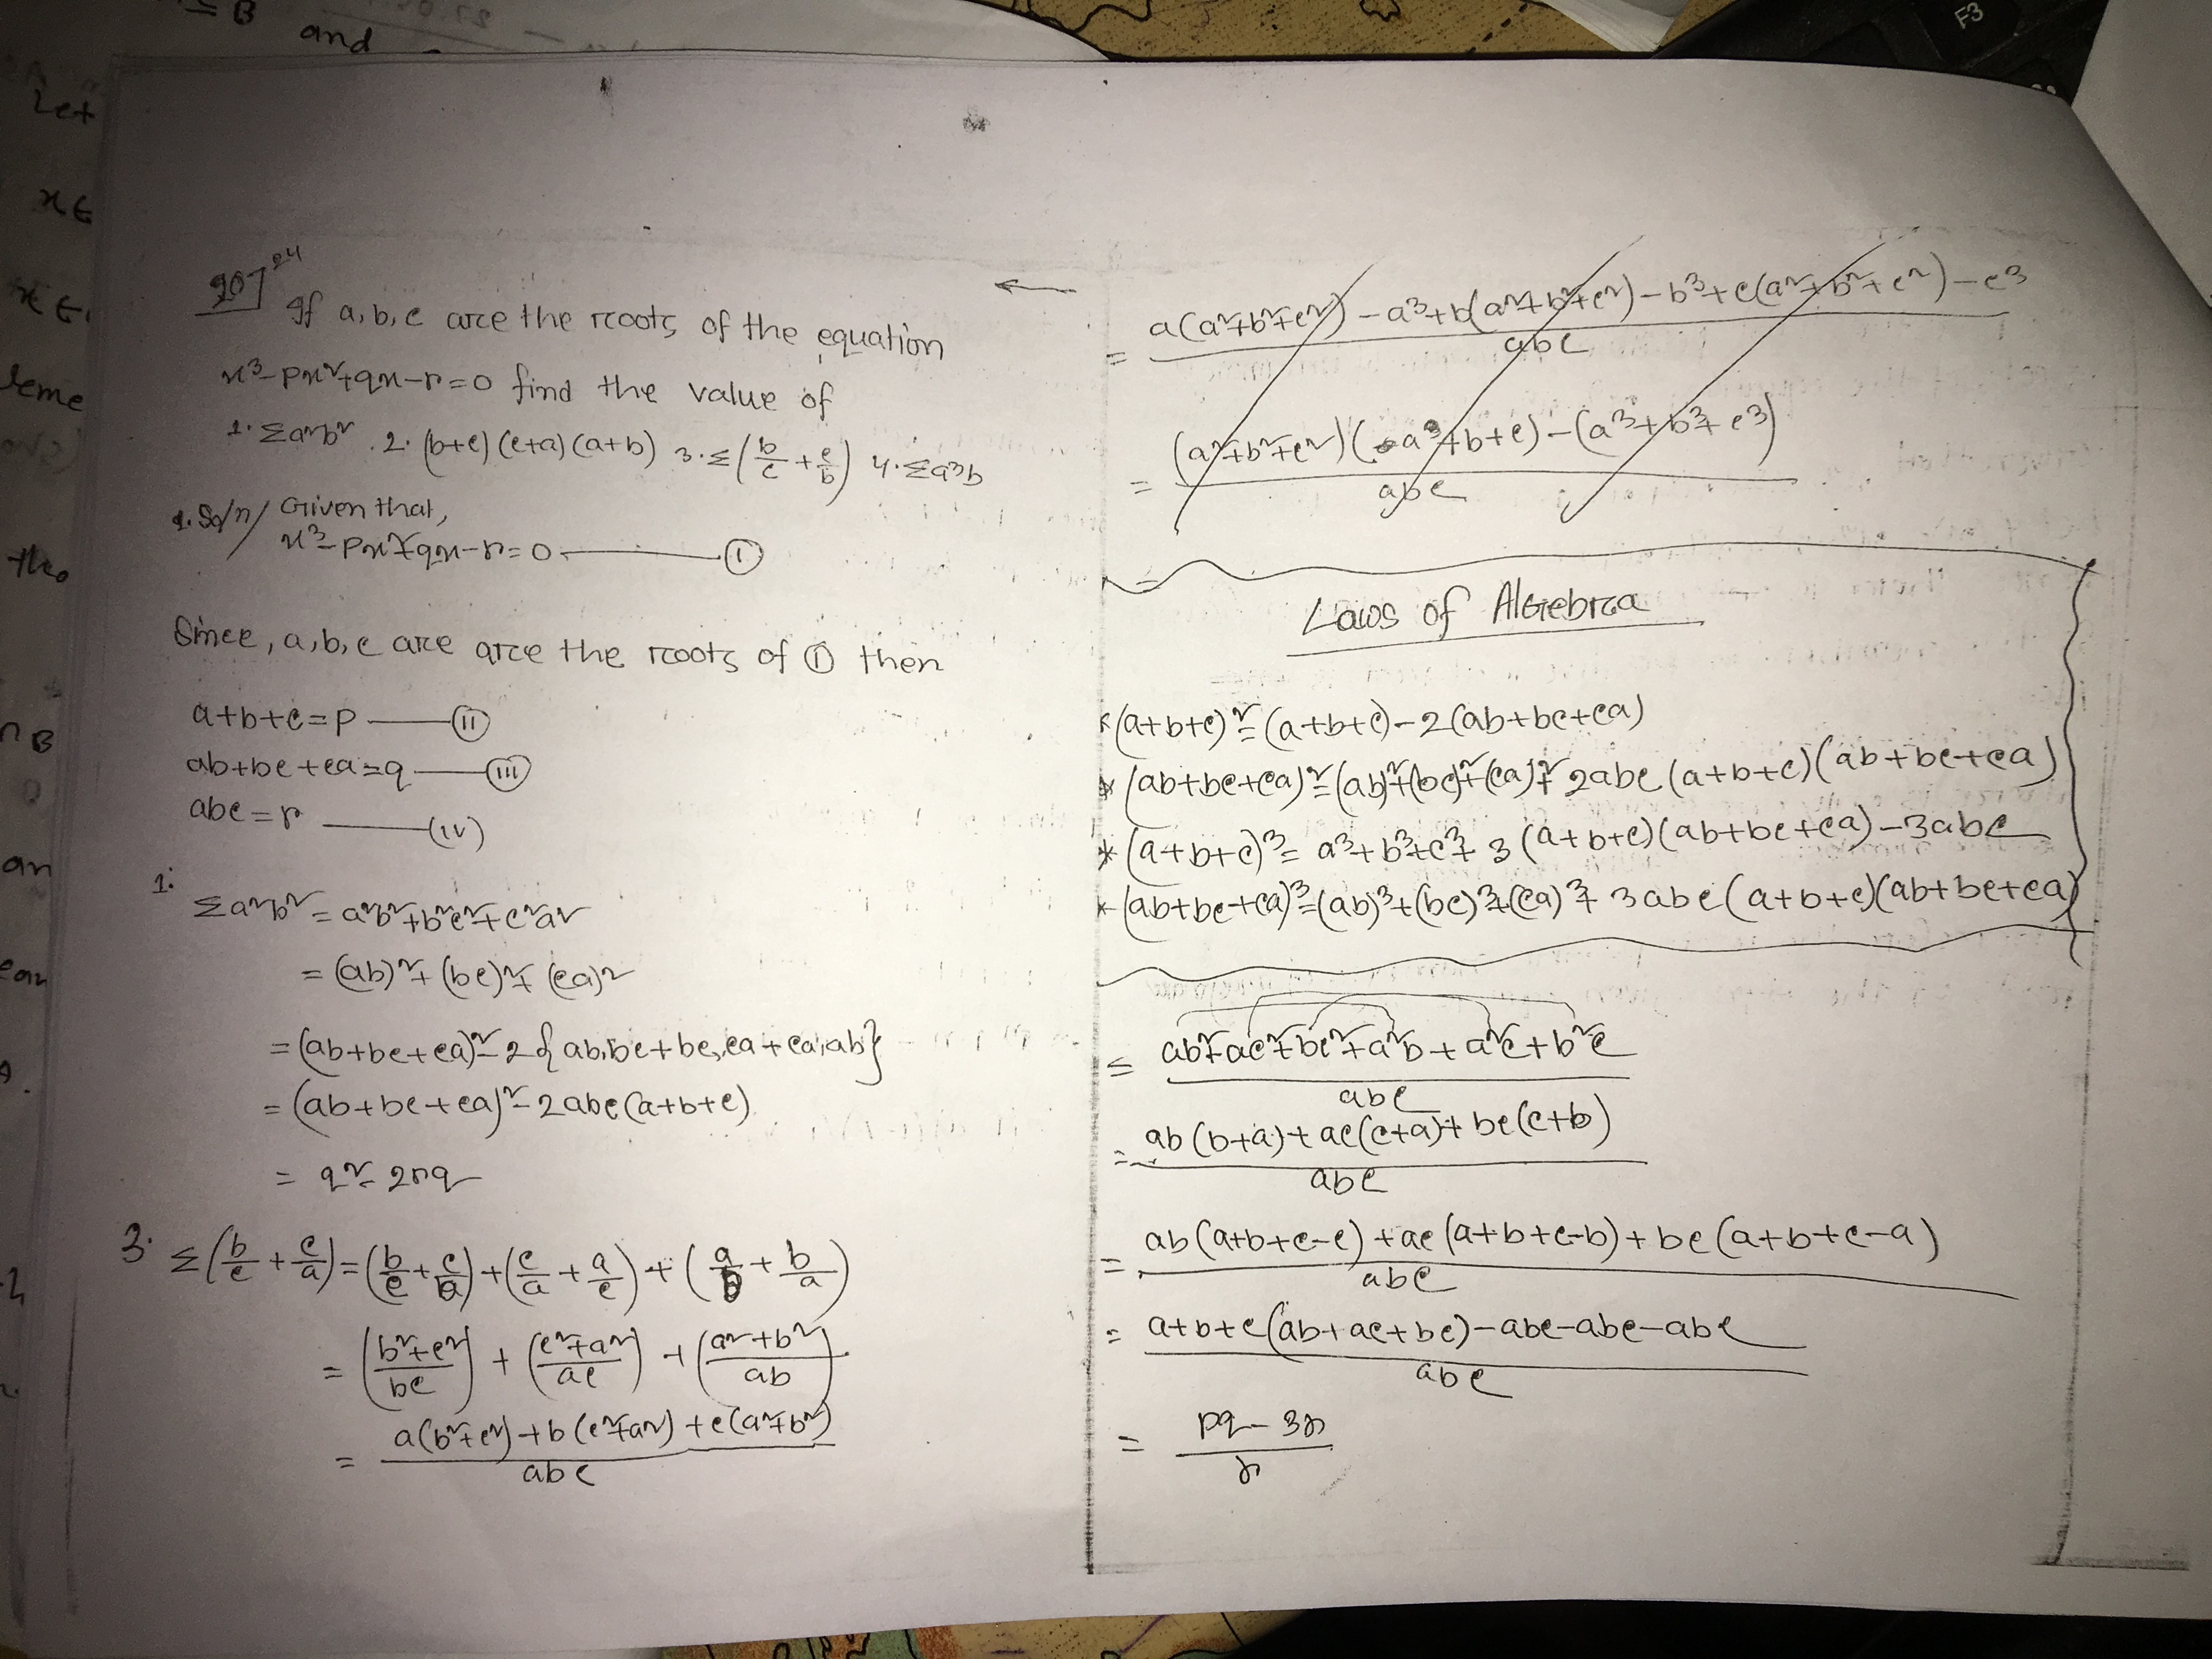 ⊆ B
and
Let
x ∈
x ∈
the
∩ B
an
F3
20724
If a, b, c are the roots of the equation
x³-px²+qx-r=0 find the value of
1. Σa²b² . 2. (b+c)(c+a)(a+b) 3. Σ(b/c + c/b) 4. Σa³b
1. Soln/ Given that,
x³-px²+qx-r=0 ——— (I)
Since, a, b, c are are the roots of (I) then
a+b+c=p ——— (II)
ab+bc+ca=q ——— (III)
abc=r ——— (IV)
1. Σa²b² = a²b²+b²c²+c²a²
= (ab)²+(bc)²+(ca)²
= (ab+bc+ca)²-2{ab.bc+bc.ca+ca.ab}
= (ab+bc+ca)²-2abc(a+b+c)
= q²-2rq
3. Σ(b/c + c/a) = (b/c + c/b) + (c/a + a/c) + (a/b + b/a)
= ((b²+c²)/bc) + ((c²+a²)/ac) + ((a²+b²)/ab)
= (a(b²+c²)+b(c²+a²)+c(a²+b²))/abc
←
= (a(a²+b²+c²)-a³+b(a²+b²+c²)-b³+c(a²+b²+c²)-c³)/abc
= ((a²+b²+c²)(a+b+c)-(a³+b³+c³))/abc
=
Laws of Algebra
* (a+b+c)²=(a+b+c)-2(ab+bc+ca)
* (ab+bc+ca)²=(ab)²+(bc)²+(ca)²+2abc(a+b+c)(ab+bc+ca)
* (a+b+c)³= a³+b³+c³+3(a+b+c)(ab+bc+ca)-3abc
* (ab+bc+ca)³=(ab)³+(bc)³+(ca)³+3abc(a+b+c)(ab+bc+ca)
= (ab²+ac²+bc²+a²b+a²c+b²c)/abc
= (ab(b+a)+ac(c+a)+bc(c+b))/abc
= (ab(a+b+c-c)+ac(a+b+c-b)+bc(a+b+c-a))/abc
= (a+b+c(ab+ac+bc)-abc-abc-abc)/abc
= (pq-3r)/r